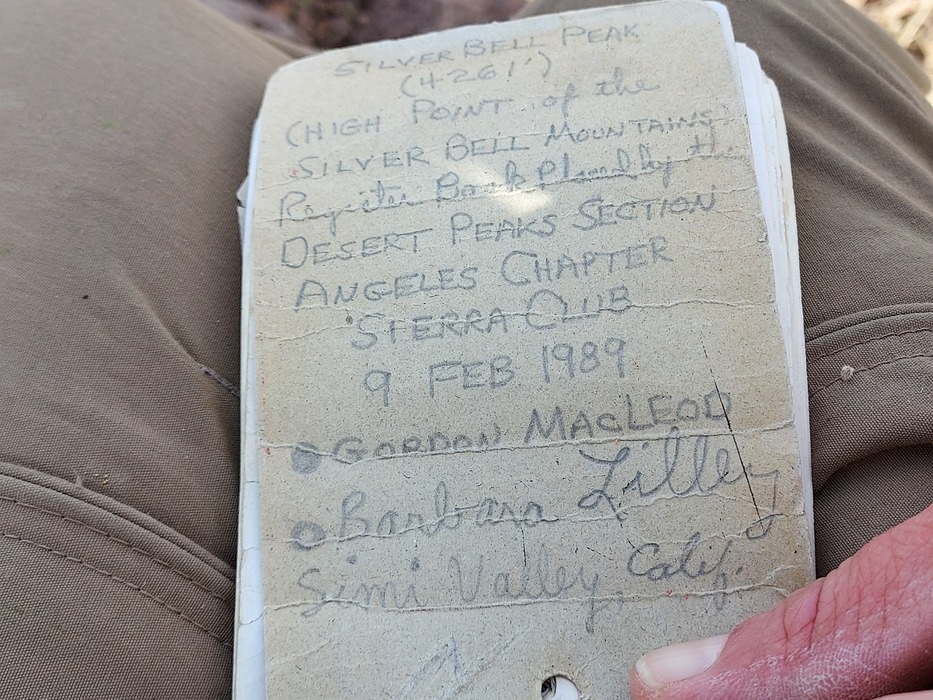 SILVER BELL PEAK
(4261')
(HIGH POINT of the
SILVER BELL MOUNTAINS)
Register Book Placed by the
DESERT PEAKS SECTION
ANGELES CHAPTER
SIERRA CLUB
9 FEB 1989
GORDON MACLEOD
Barbara Lilley
Simi Valley, Calif.